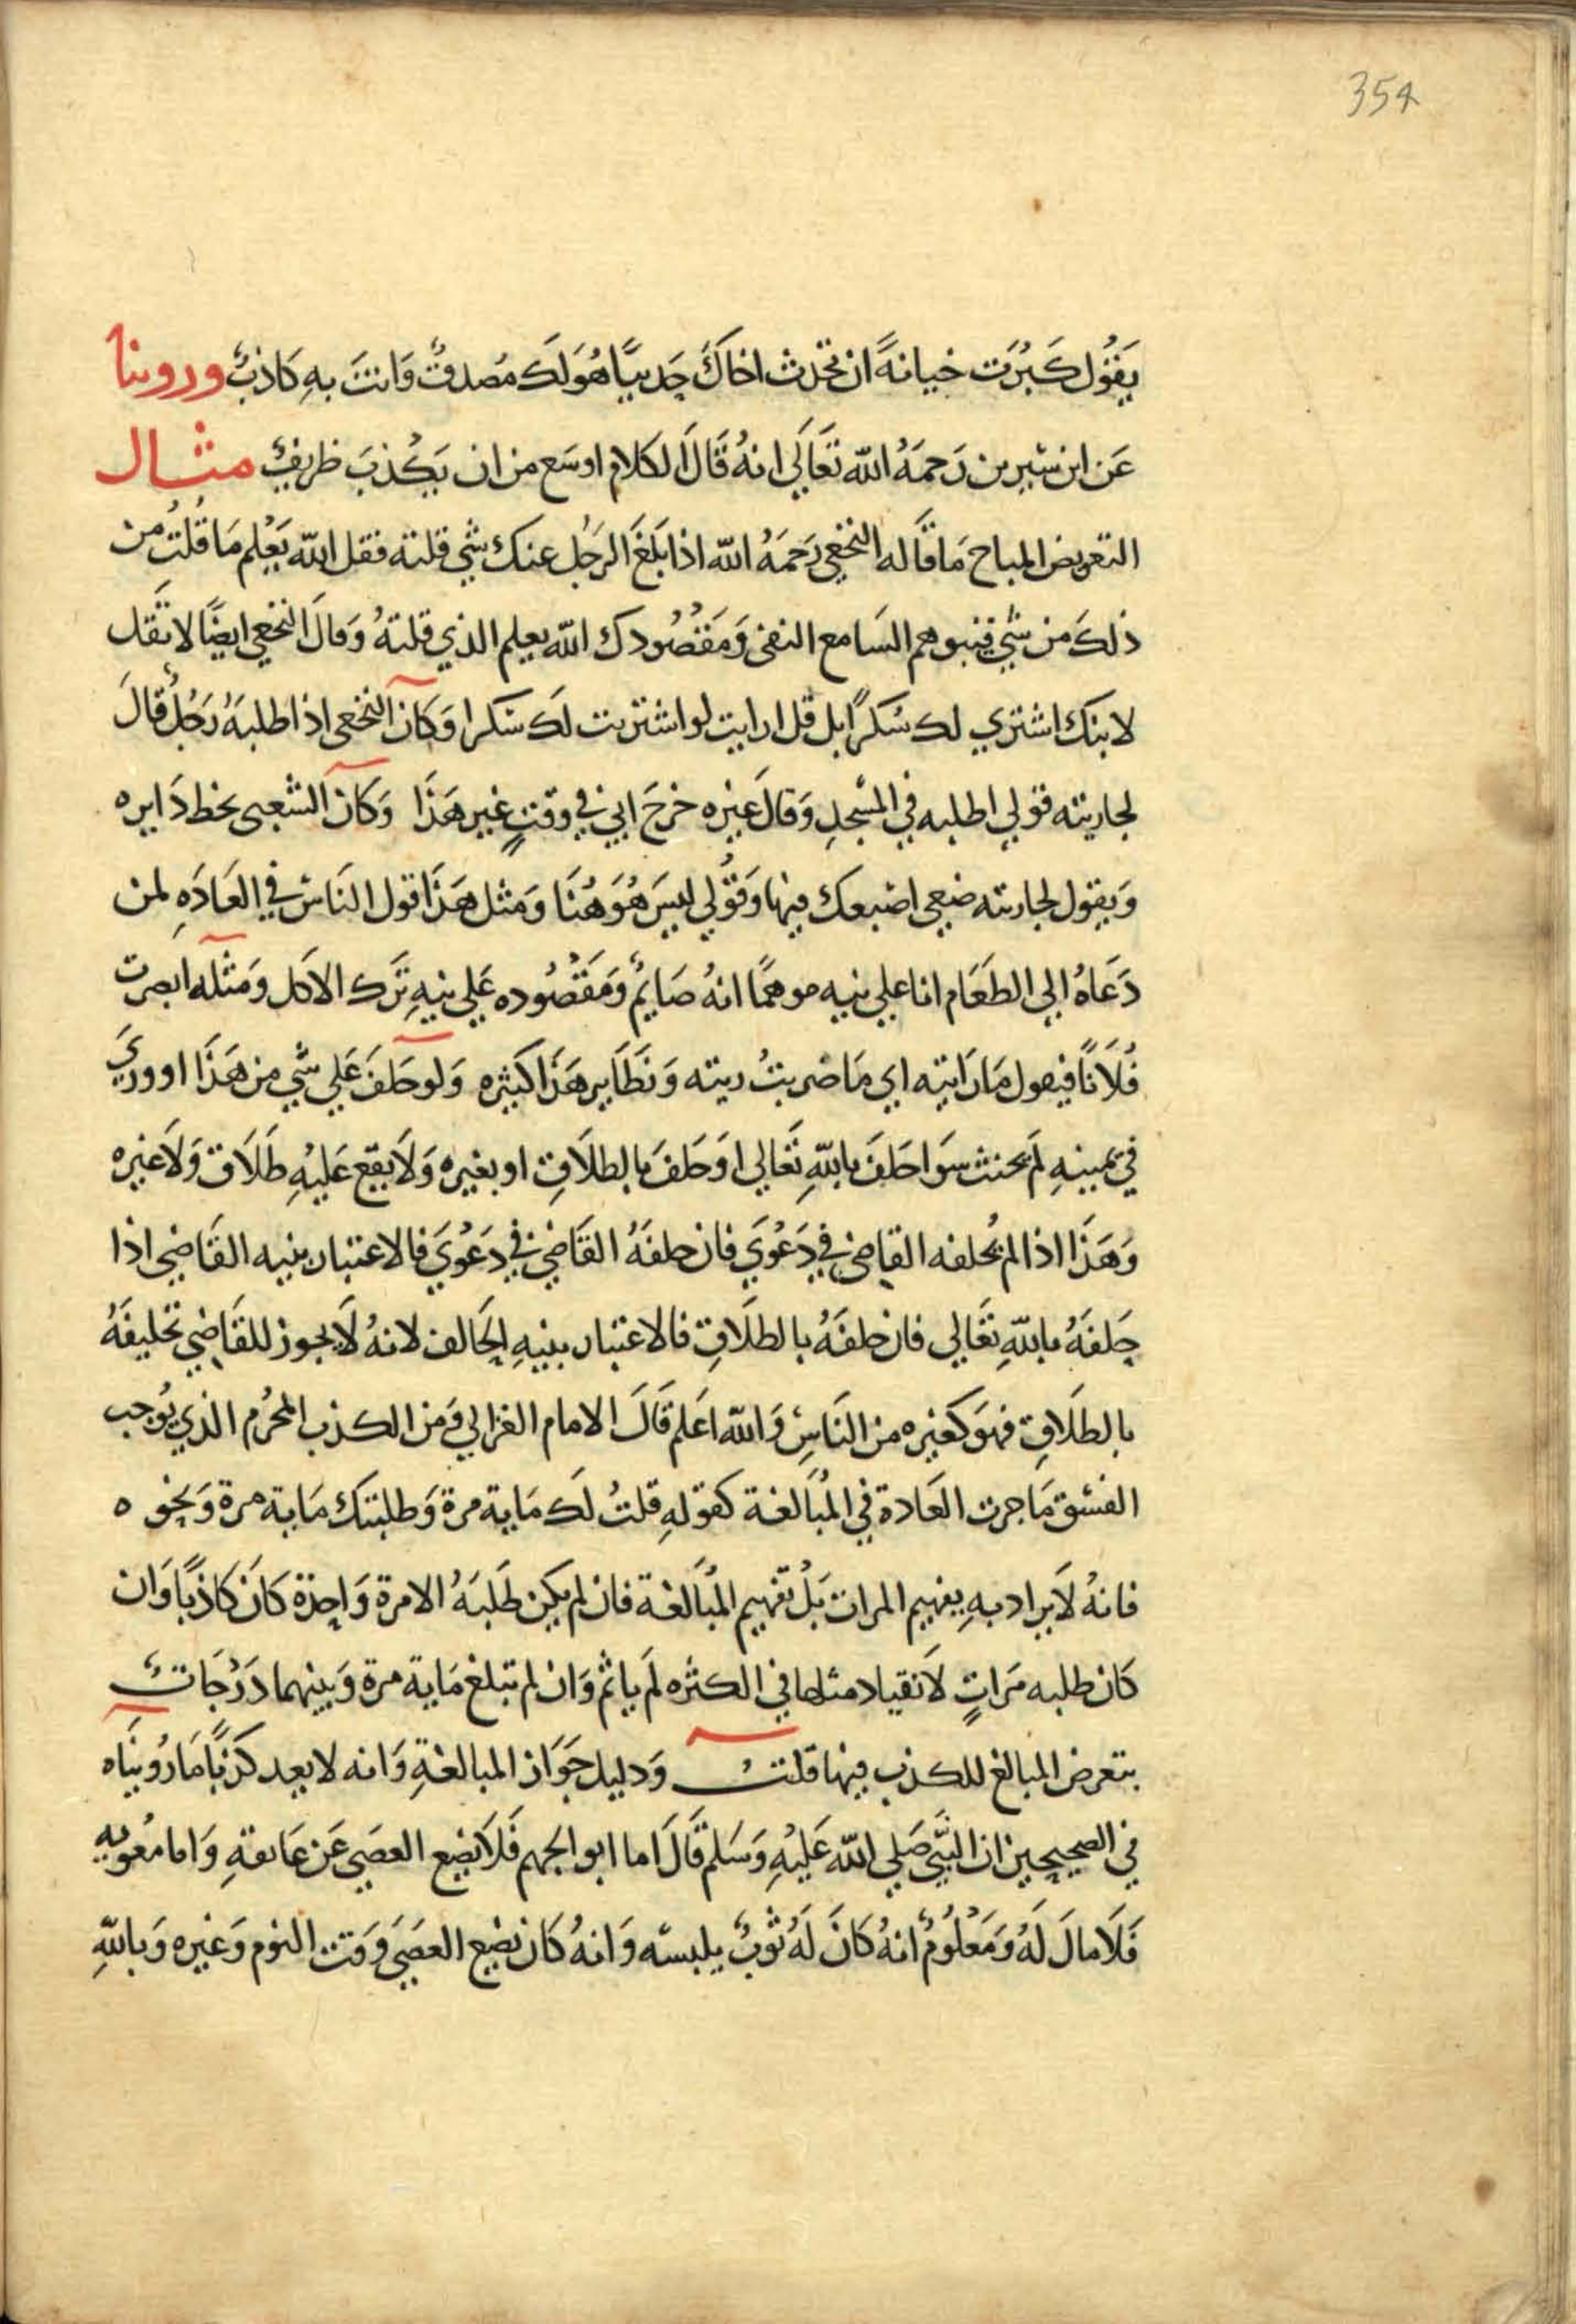 354
يَقُول كَبُرَت خيانةً ان تحدث اخاكَ حَديثًا هُوَ لَكَ مُصدقٌ وَانتَ بهِ كَاذبٌ وروينا
عَن ابن سيرين رَحمَهُ الله تعَالَى انهُ قَالَ الكلام اوسَع من ان يَكْذبَ ظريفٌ مثال
التعريض المباح مَا قَاله النخعي رَحمَهُ الله اذا بَلغَ الرجُل عنك شي قلته فقل الله يَعْلم مَا قُلتُ من
ذلكَ من شي فيتوهم السَامع النفى وَمَقصُودك الله يعلم الذي قلتهُ وَقالَ النخعي ايضًا لا تَقل
لابنك اشتري لك سُكرًا بل قل ارايت لو اشتريت لك سُكرا وَكانَ النخعي اذا طلبهُ رَجُلٌ قالَ
لجاريته قولي اطلبه في المسْجدِ وَقالَ غيره خرجَ ابي في وقتٍ غير هَذَا وَكانَ الشعبى يخط دَايره
وَيقول لجاريته ضعي اصْبعك فيها وَقُولي ليسَ هُوَ هُنَا وَمثل هَذَا قول الناسْ في العَادَهِ لمن
دَعَاهُ الي الطعَام انا علي نيه موهمًا انهُ صَايمٌ وَمَقصُوده عَلي نيهِ تَرك الاكل وَمثله ابصرت
فُلَانًا فيقول مَا رَايته اي مَا ضربتُ ريته وَنظَاير هَذَا كثيره وَلو حَلفَ عَلي شي من هَذَا او ورَّي
في يمينهِ لَم يحنث سوَا حَلفَ باللهِ تعَالي اوَ حَلفَ بالطلَاقِ او بغيره وَلَا يقع عَليْهِ طَلَاق وَلَا غيره
وَهَذَا اذا لم يُحلفه القاضي في دَعْوَي فان حلفهُ القَاضي في دعْوَي فالاعتبار بنيه القَاضي اذا
حَلفهُ باللهِ تعَالي فان حلفهُ بالطلَاقِ فالاعتبار بنيهِ الحَالف لانهُ لَا يجوز للقَاضي تحليفهُ
بالطلَاقِ فهوَ كغيره من النَاسِ وَالله اعَلم قَالَ الامام الغزالي وَمن الكذب المحرُم الذي يُوجب
الفسْق مَا جرت العَادة في المُبَالغة كقولهِ قلتُ لَك مَاية مرة وَطلبتك مَاية مرة وَنحوه
فانهُ لَا يراد بهِ يفهيم المرات بَلْ تفهيم المُبَالغة فان لم يكن طَلبَهُ الا مرة وَاحدة كَانَ كاذبًا وَان
كَان طلبه مَراتٍ لَا نقياد مثلها في الكثره لَم ياثم وَان لم تبلغ مَاية مرة وَبينهما دَرَجَاتٌ
يتعرض المبالغ للكذب فيها قلتُ وَدليل جَوَاز المبالغةِ وَانه لا يعد كذبًا مَا رُوينَاه
في الصحيحين ان النَّبيَّ صَلي الله عَليْهِ وَسَلم قَالَ اما ابو الجهم فَلَا يَضع العصَي عَن عَاتقهِ وَاما مُعويه
فَلَا مالَ لَهُ وَمَعْلُومٌ انهُ كَانَ لَهُ ثوبٌ يلبسه وَانهُ كَان يَضع العصَي وَقت النوم وَغيره وَباللهِ